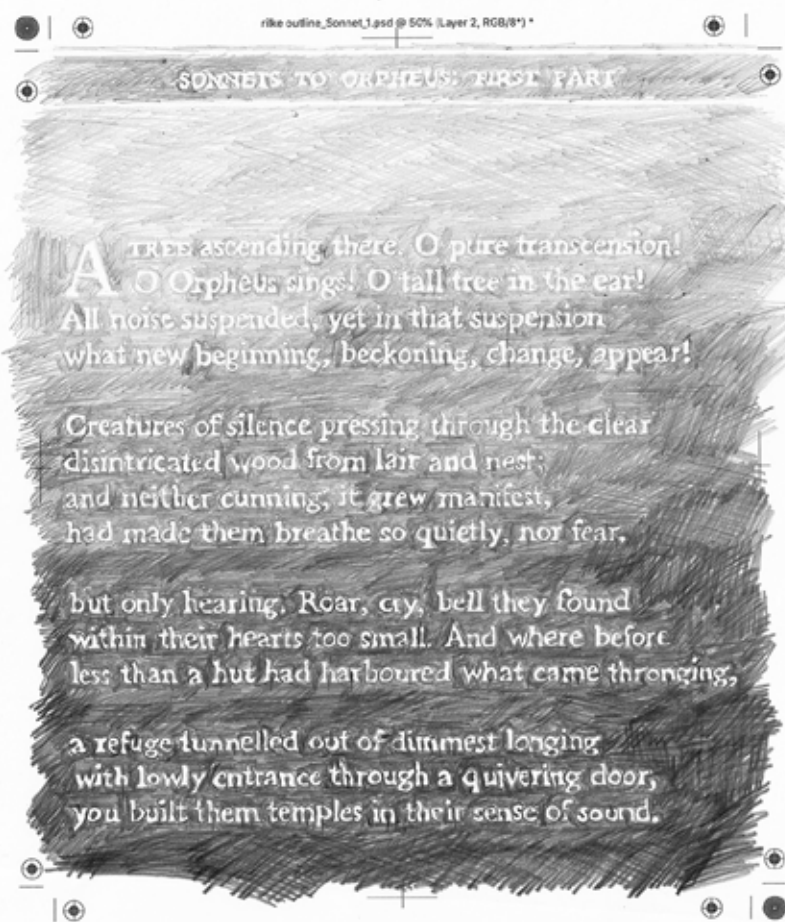 rilke outline_Sonnet_1.psd @ 50% (Layer 2, RGB/8*) *
SONNETS TO ORPHEUS: FIRST PART
A TREE ascending there. O pure transcension!
O Orpheus sings! O tall tree in the ear!
All noise suspended, yet in that suspension
what new beginning, beckoning, change, appear!
Creatures of silence pressing through the clear
disintricated wood from lair and nest;
and neither cunning, it grew manifest,
had made them breathe so quietly, nor fear,
but only hearing. Roar, cry, bell they found
within their hearts too small. And where before
less than a hut had harboured what came thronging,
a refuge tunnelled out of dimmest longing
with lowly entrance through a quivering door,
you built them temples in their sense of sound.